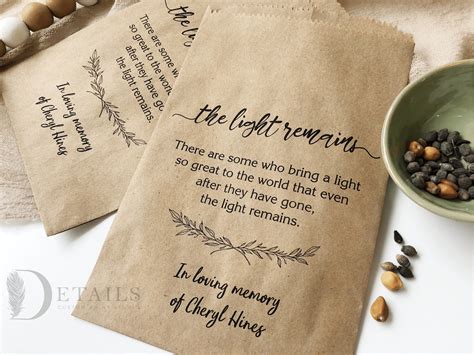 the light remains
There are some who bring a light
so great to the world that even
after they have gone,
the light remains.
In loving memory
of Cheryl Hines
the light remains
There are some who bring a light
so great to the world that even
after they have gone,
the light remains.
In loving memory
of Cheryl Hines
DETAILS